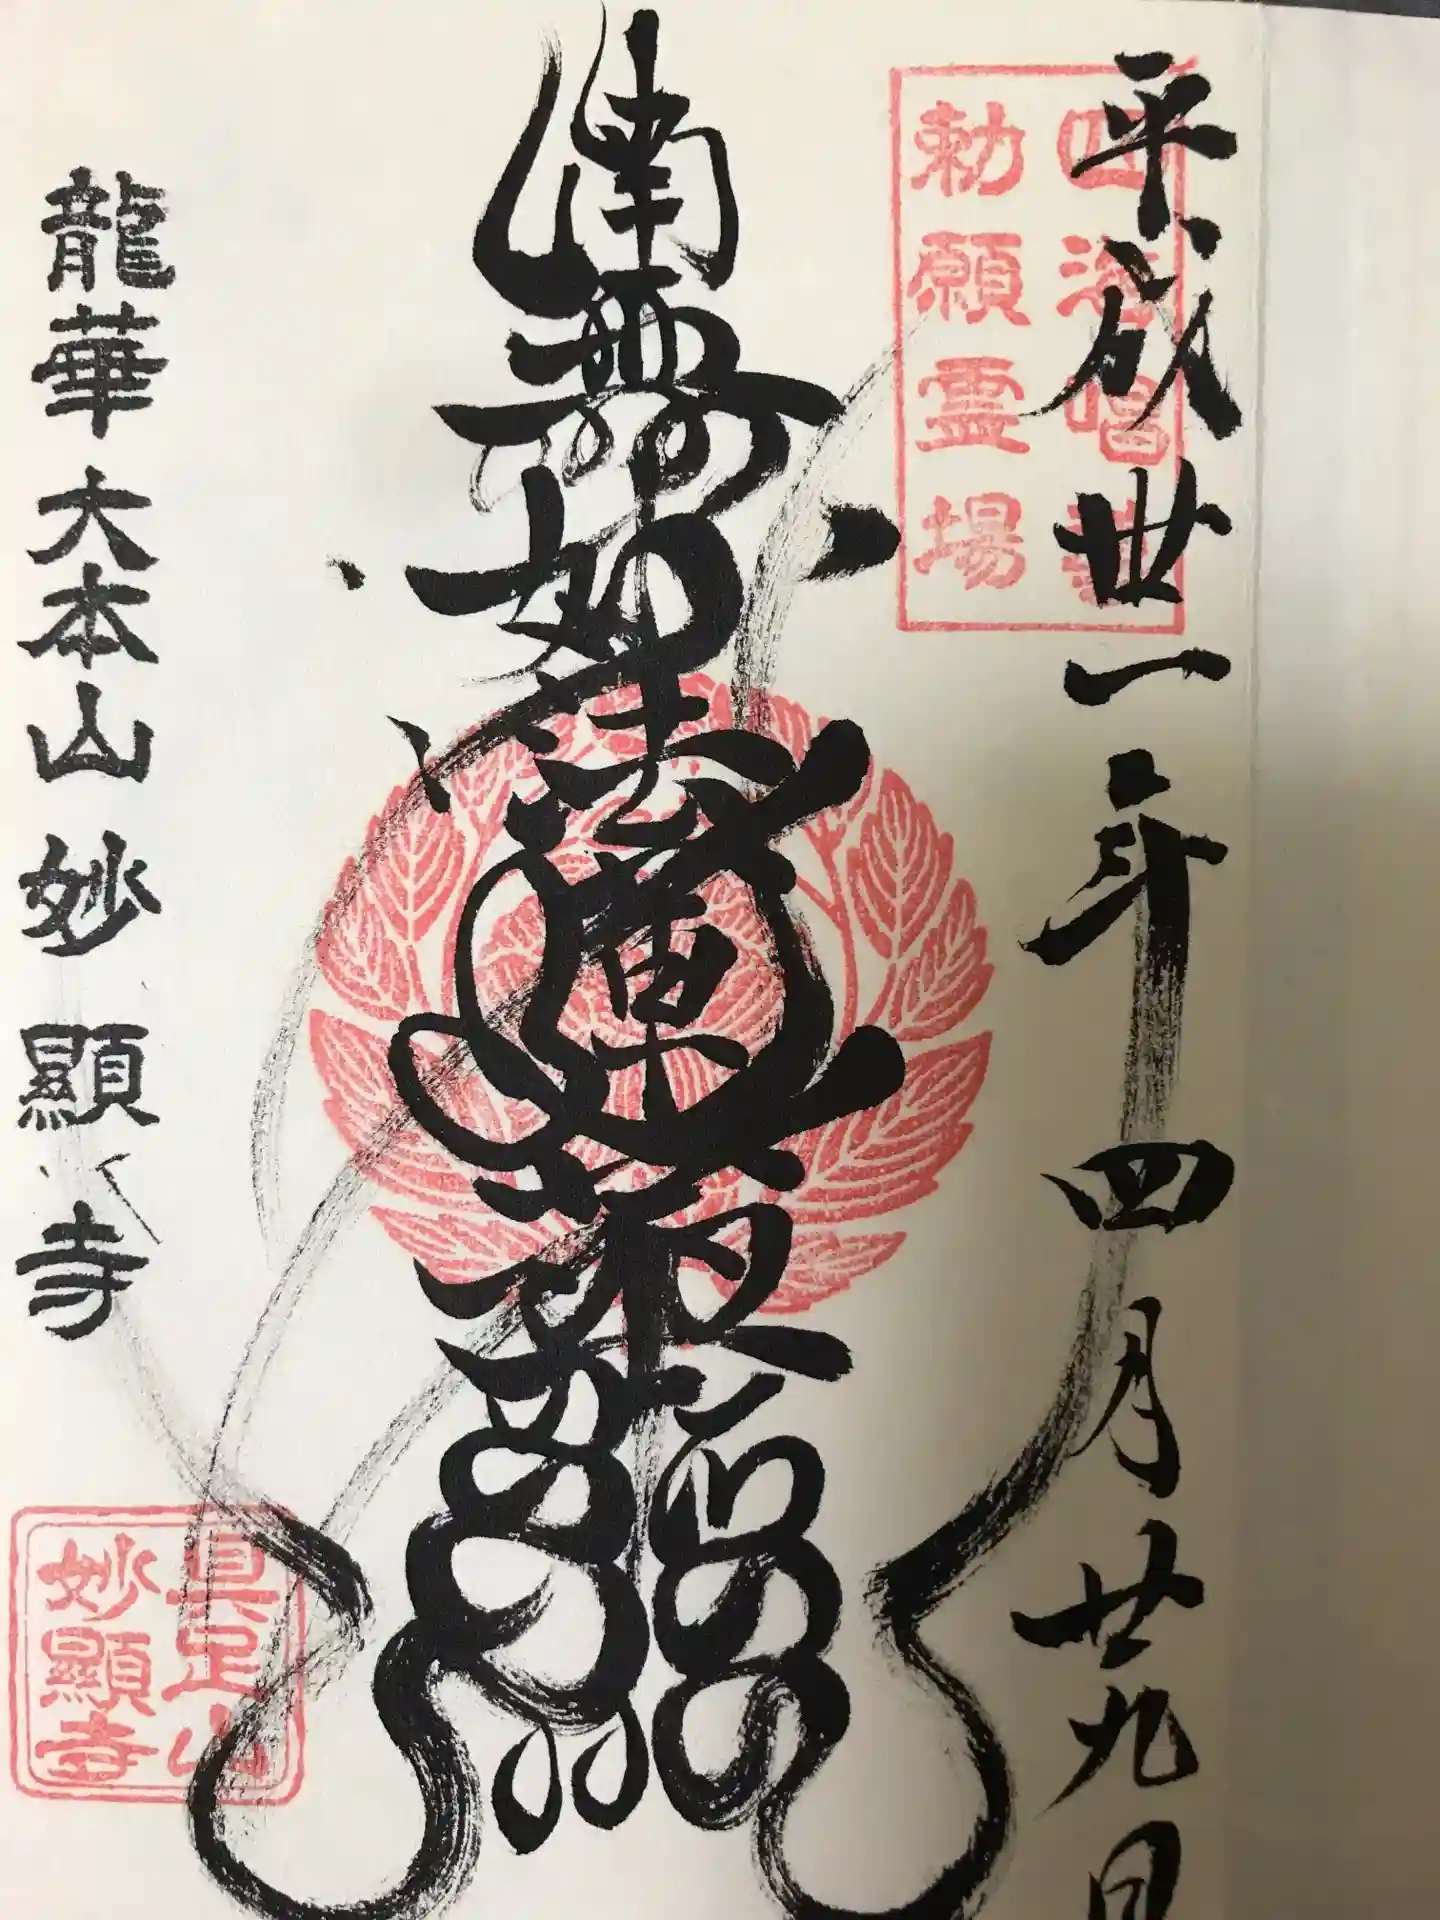 平成丗一年四月廿九日
四海唱導
勅願霊場
南無妙法蓮華経
龍華 大本山 妙顯寺
具足山
妙顯寺